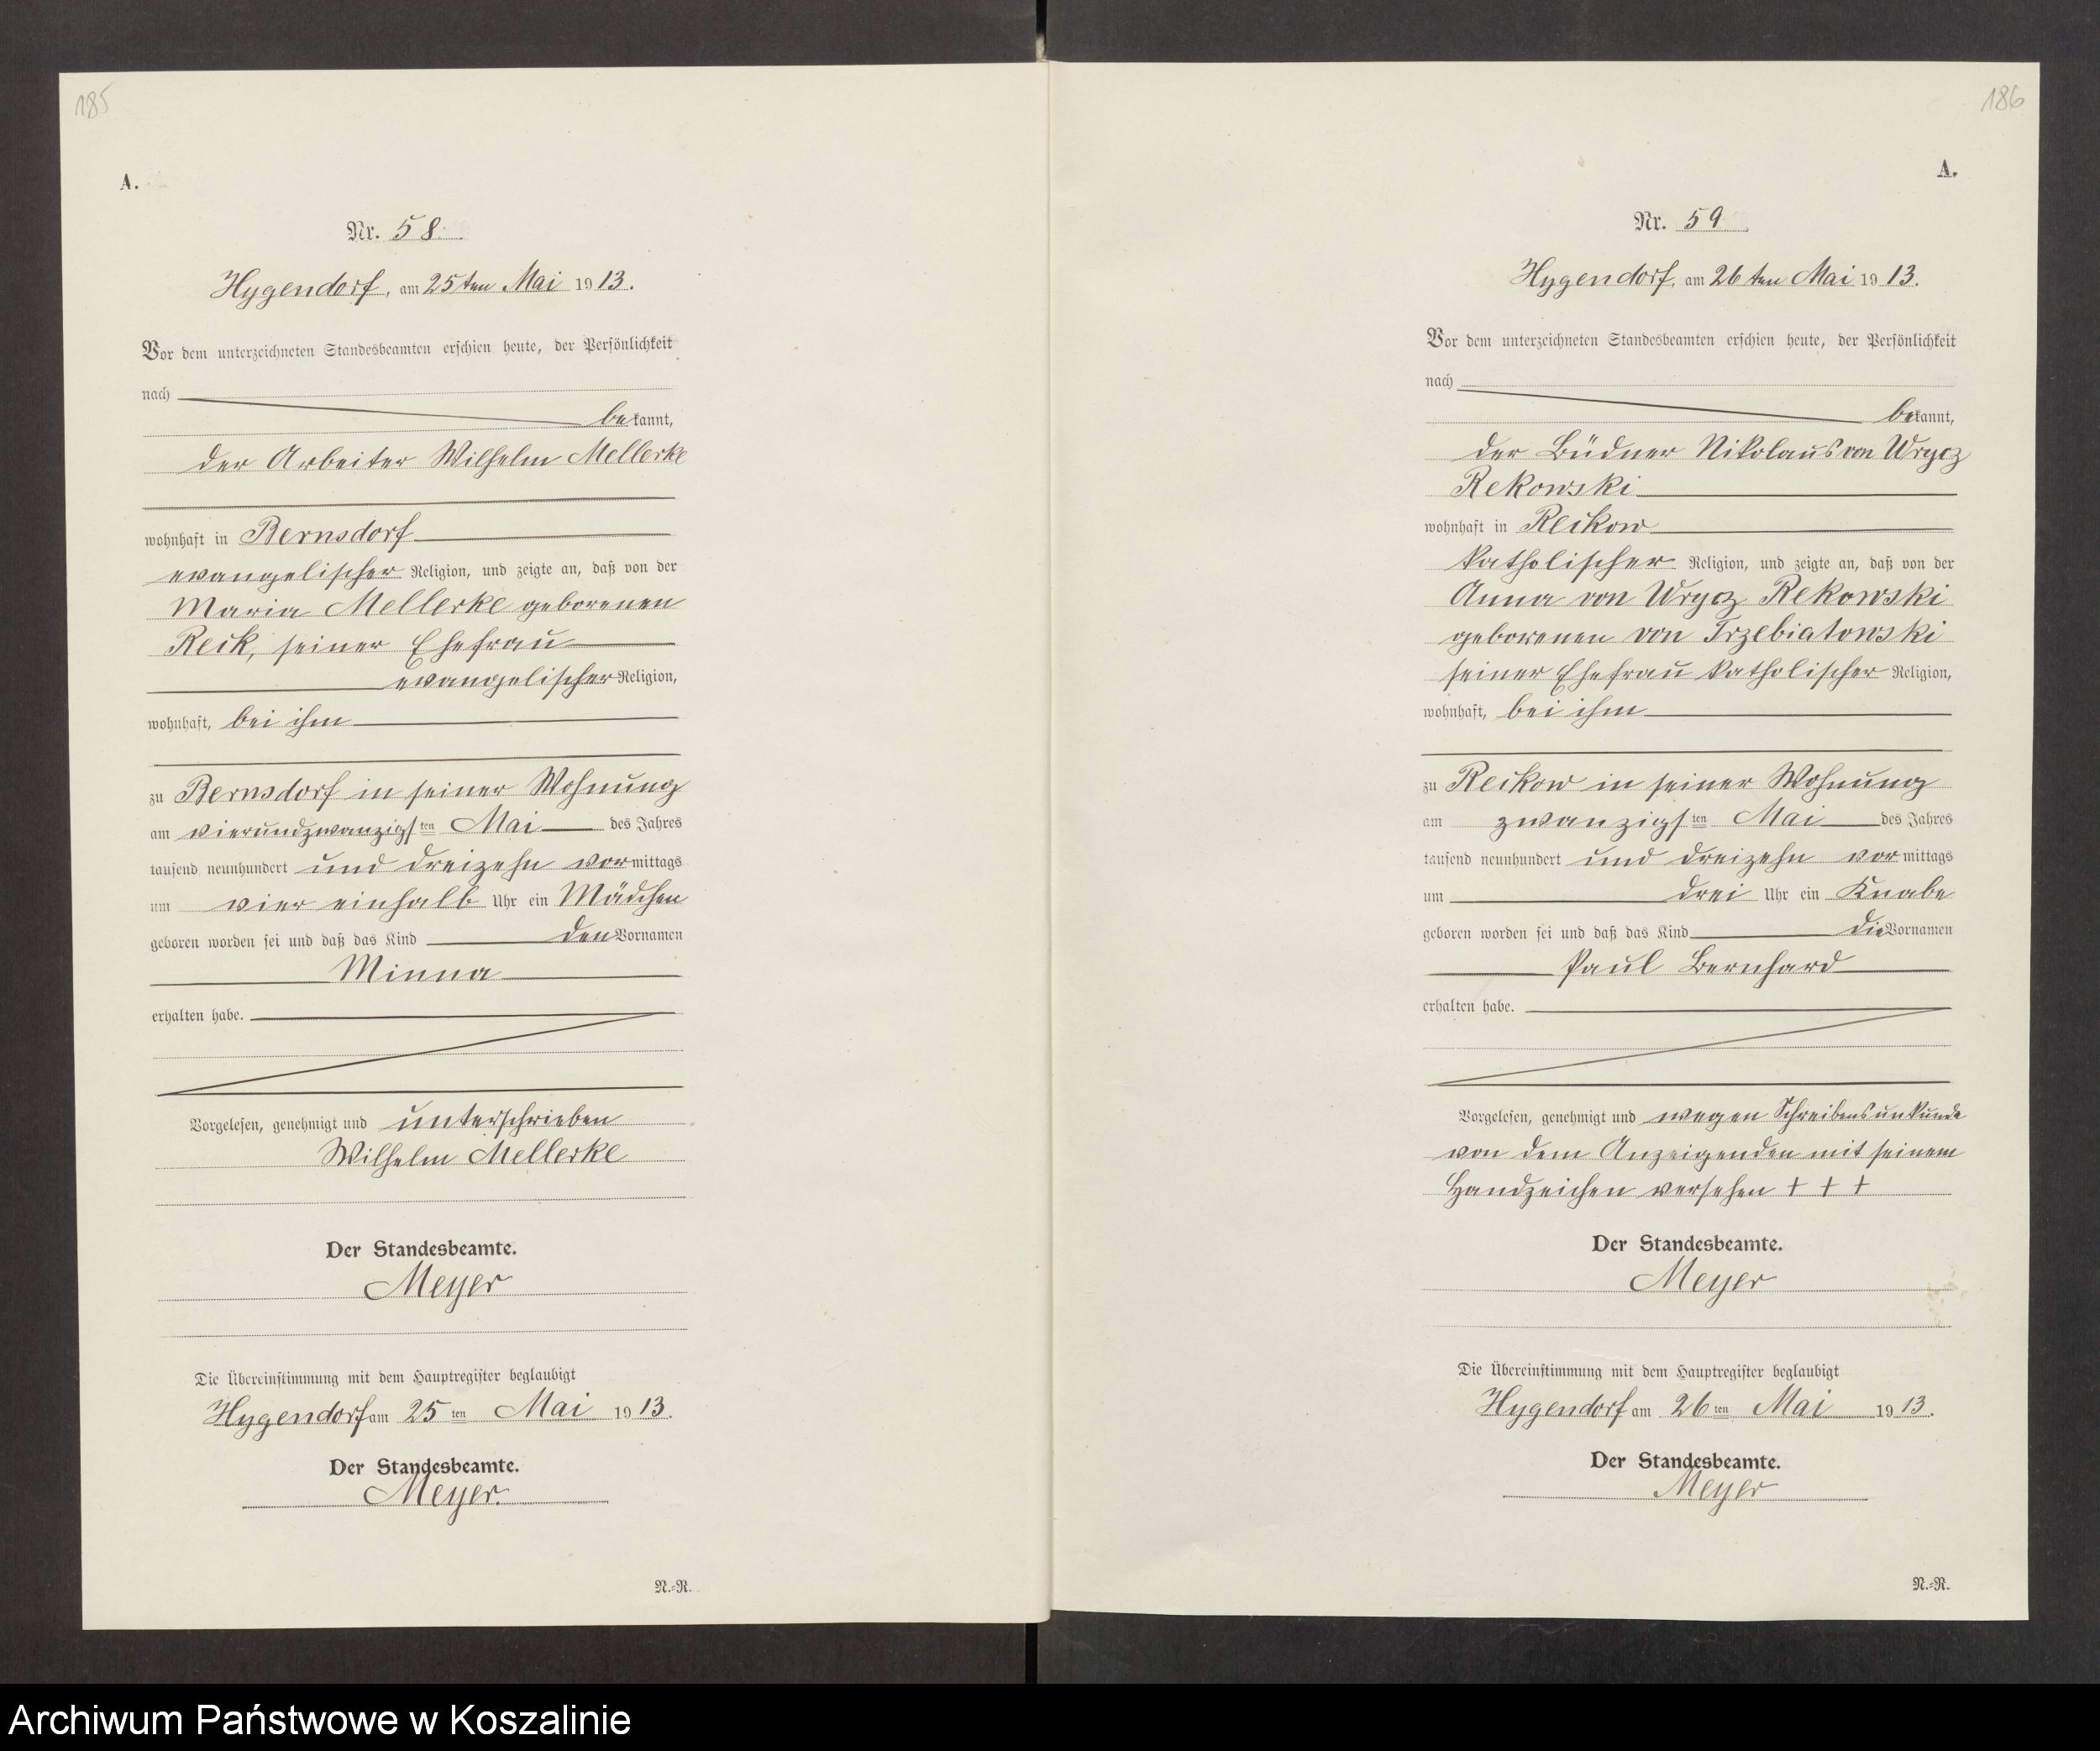 185
A.
Nr. 58.
Hygendorf, am 25ten Mai 1913.
Vor dem unterzeichneten Standesbeamten erschien heute, der Persönlichkeit
nach
bekannt,
der Arbeiter Wilhelm Mellerke
wohnhaft in Bernsdorf
evangelischer Religion, und zeigte an, daß von der
Maria Mellerke geborenen
Reck, seiner Ehefrau
evangelischer Religion,
wohnhaft, bei ihm
zu Bernsdorf in seiner Wohnung
am vierundzwanzigsten Mai des Jahres
tausend neunhundert und dreizehn vormittags
um vier einhalb Uhr ein Mädchen
geboren worden sei und daß das Kind den Vornamen
Minna
erhalten habe.
Vorgelesen, genehmigt und unterschrieben
Wilhelm Mellerke
Der Standesbeamte.
Meyer
Die Übereinstimmung mit dem Hauptregister beglaubigt
Hygendorf am 25ten Mai 1913.
Der Standesbeamte.
Meyer.
N.=R.
186
A.
Nr. 59.
Hygendorf, am 26ten Mai 1913.
Vor dem unterzeichneten Standesbeamten erschien heute, der Persönlichkeit
nach
bekannt,
der Büdner Nikolaus von Wrycz
Rekowski
wohnhaft in Reikow
katholischer Religion, und zeigte an, daß von der
Anna von Wrycz Rekowski
geborenen von Trzebiatowski
seiner Ehefrau katholischer Religion,
wohnhaft, bei ihm
zu Reikow in seiner Wohnung
am zwanzigsten Mai des Jahres
tausend neunhundert und dreizehn vormittags
um drei Uhr ein Knabe
geboren worden sei und daß das Kind die Vornamen
Paul Bernhard
erhalten habe.
Vorgelesen, genehmigt und wegen Schreibensunkunde
von dem Anzeigenden mit seinem
Handzeichen versehen + + +
Der Standesbeamte.
Meyer
Die Übereinstimmung mit dem Hauptregister beglaubigt
Hygendorf am 26ten Mai 1913.
Der Standesbeamte.
Meyer
N.=R.
Archiwum Państwowe w Koszalinie